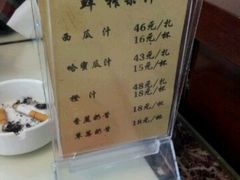 鲜榨果汁
西瓜汁 46元/扎
16元/杯
哈蜜瓜汁 43元/扎
15元/杯
橙汁 48元/扎
18元/杯
香蕉奶昔 18元/杯
草莓奶昔 18元/杯